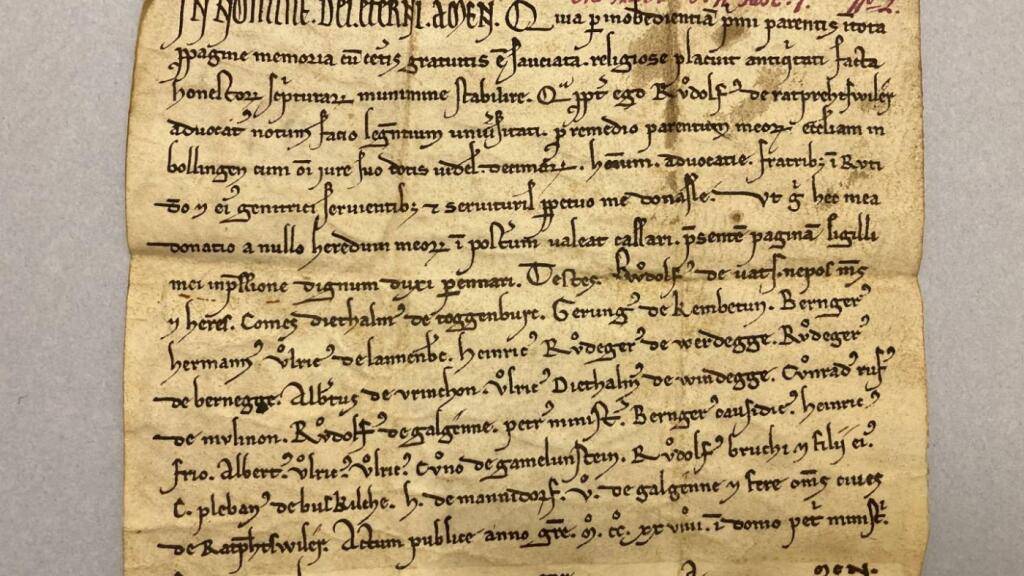 IN NOMINE. DEI. ETERNI. AMEN. Quia p inobedientiā pmi parentis
ꝓpagine memoria cū cet̄is gratuitis ē sauciata. religiose placuit antiq̇tati facta
honestoꝝ sc̄pturaꝝ munimine stabilire. Qua ꝓpt̄ ego Růdolfꝰ de ratprehtswiler
advocatꝰ notum facio legentium univ̄sitati. p remedio parentum meoꝝ eccl̄iam in
bollingen cum om̄i iure suo dotis videl. decimaꝝ. hom̄inum. advocatie. fratribꝫ ī Ruti
dō ⁊ eiꝰ genitrici servientibꝫ ⁊ servituris ꝑpetuo me donasse. Ut ḡ hec mea
donatio a nullo heredum meoꝝ ī post̄um valeat cassari. p̄sentē paginā sigilli
mei inp̄ssione dignum duxi ꝑennari. Testes. Růdolfꝰ de vats. nepos mꝰs
⁊ heres. Comes diethalmꝰ de toggenburc. Gerungꝰ de kembetun. Berngerꝰ
hermannꝰ ůlricꝰ de lannenbc. heinricꝰ Růdegerꝰ de werdegge. Růdegerꝰ
de bernegge. Alb̄tus de urinchon. ůlricꝰ Diethalmꝰ de windegge. Cůnradꝰ rufꝰ
de mulinon. Růdolfꝰ de galgenne. petrꝰ minist̄. Berngerꝰ causidicꝰ. heinricꝰ
frio. Albertꝰ. ůlricꝰ. ůlricꝰ. Cůno de gamelunstein. Růdolfꝰ bruchi ⁊ filii eiꝰ.
C. plebanꝰ de buskilche. h. de mannidorf. ů. de galgenne ⁊ fere om̄s cives
de Ratp̄htswiler. Actum publice anno gr̄e. M. CC. XX VIIII. ī domo pet̄ minist̄.